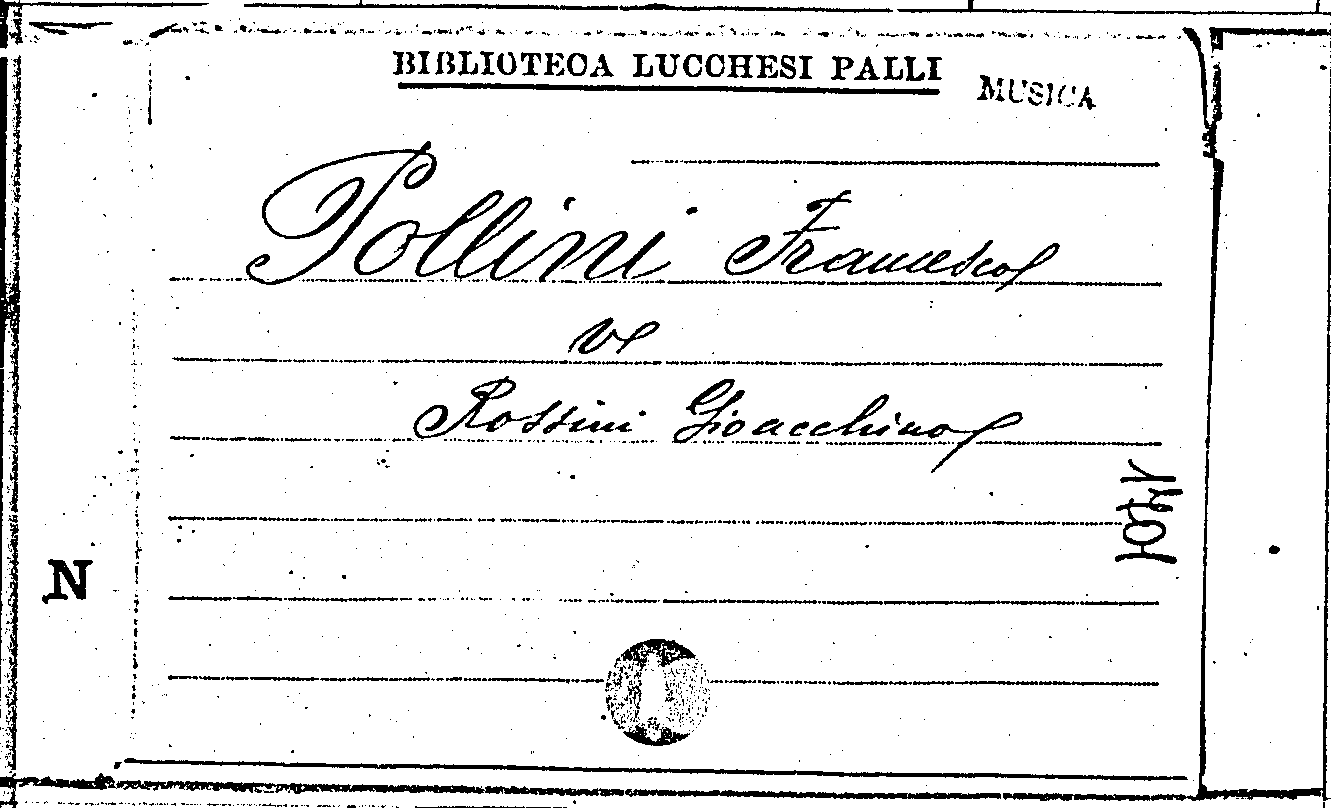 BIBLIOTECA LUCCHESI PALLI
MUSICA
Pollini Francesco
ve
Rossini Gioacchino
N